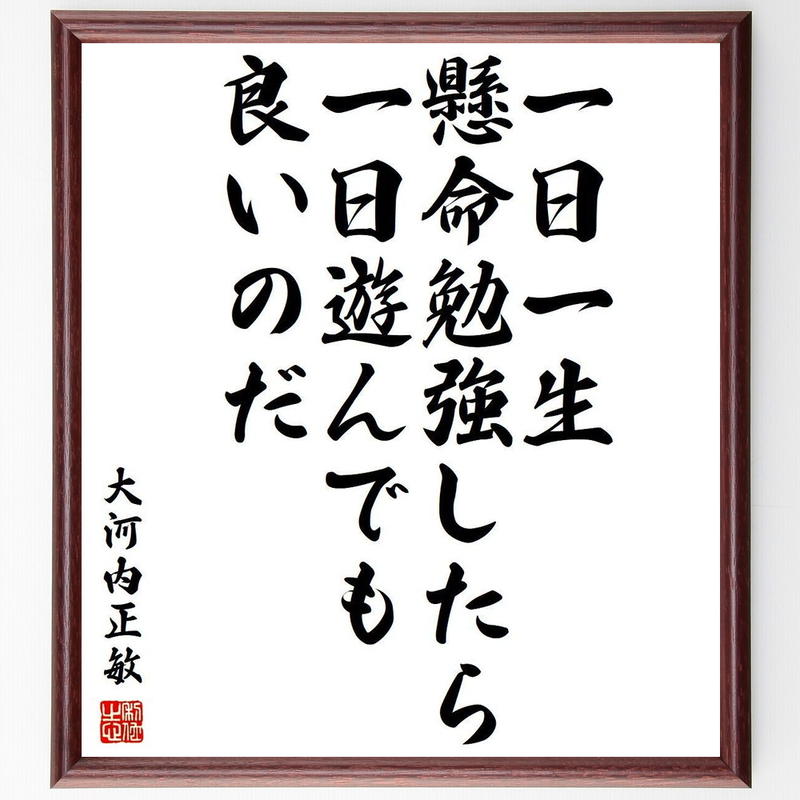 一日一生
懸命勉強したら
一日遊んでも
良いのだ
大河内正敏